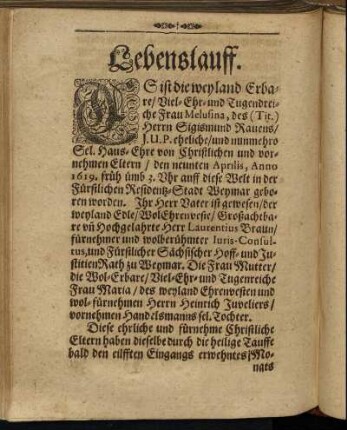 Lebenslauff.
ES ist die weyland Erba-
re/ Viel-Ehr- und Tugendrei-
che Frau Melusina, des (Tit.)
Herrn Sigismund Rauens/
J.U.P. ehrliche/ und nunmehro
Sel. Haus-Ehre von Christlichen und vor-
nehmen Eltern/ den neunten Aprilis, Anno
1619. früh ümb 3. Uhr auff diese Welt in der
Fürstlichen Residentz-Stadt Weymar gebo-
ren worden. Ihr Herr Vater ist gewesen/ der
weyland Edle/ WolEhrenveste/ Großachtba-
re vñ Hochgelahrte Herr Laurentius Braun/
fürnehmer und wolberühmter Iuris-Consul-
tus, und Fürstlicher Sächsischer Hoff- und Ju-
stitien Rath zu Weymar. Die Frau Mutter/
die Wol-Erbare/ Viel-Ehr- und Tugenreiche
Frau Maria/ des weyland Ehrenvesten und
wol-fürnehmen Herrn Heinrich Juveliers/
vornehmen Handelsmanns sel. Tochter.
Diese ehrliche und fürnehme Christliche
Eltern haben dieselbe durch die heilige Tauffe
bald den eilfften Eingangs erwehntes Mo-
nats